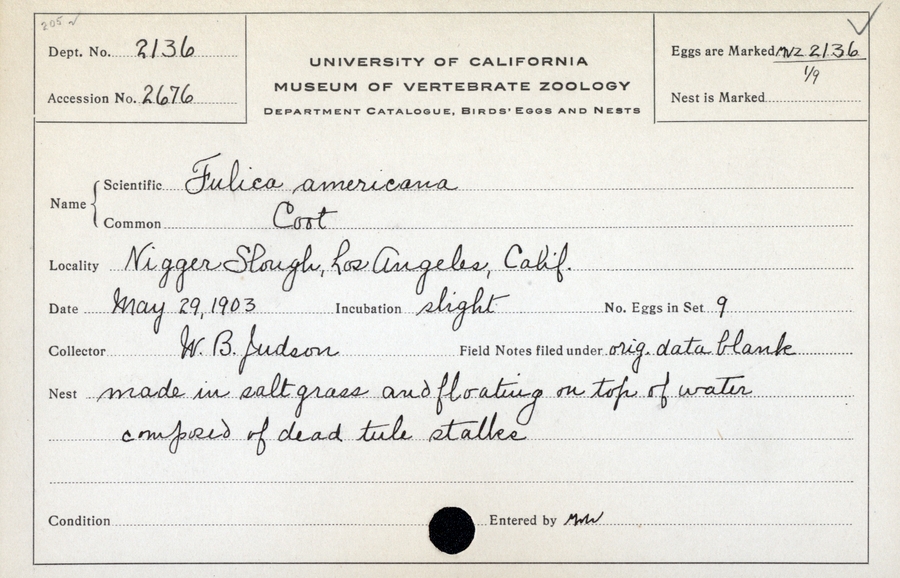 205
Dept. No. 2136
Accession No. 2676
UNIVERSITY OF CALIFORNIA
MUSEUM OF VERTEBRATE ZOOLOGY
DEPARTMENT CATALOGUE, BIRDS' EGGS AND NESTS
Eggs are Marked MVZ 2136
1/9
Nest is Marked
Name
Scientific Fulica americana
Common Coot
Locality Nigger Slough, Los Angeles, Calif.
Date May 29, 1903 Incubation slight No. Eggs in Set 9
Collector W. B. Judson Field Notes filed under orig. data blank
Nest made in salt grass and floating on top of water
composed of dead tule stalks
Condition Entered by